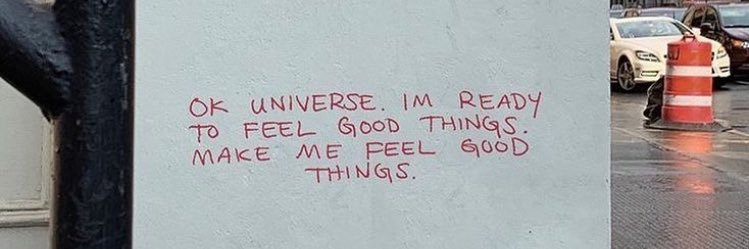 OK UNIVERSE. IM READY
TO FEEL GOOD THINGS.
MAKE ME FEEL GOOD
THINGS.